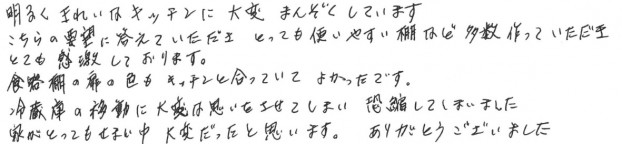 明るく きれいなキッチンに 大変 まんぞくしています
こちらの要望に答えていただき とっても使いやすい棚など多数作っていただき
とても感激しております。
食器棚の扉の色も キッチンと合っていて よかったです。
冷蔵庫の移動に大変な思いをさせてしまい 恐縮してしまいました
家がとってもせまい中 大変だったと思います。 ありがとうございました